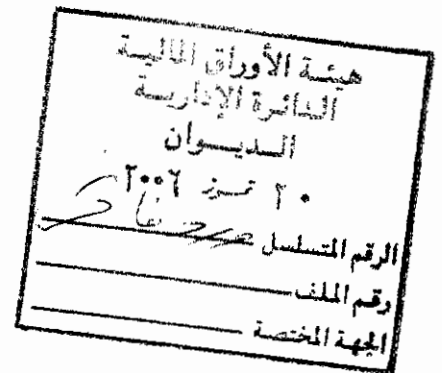 هيئة الأوراق المالية
الدائرة الإدارية
الديوان
٢٠ تموز ٢٠٠٦
الرقم المتسلسل
رقم الملف
الجهة المختصة